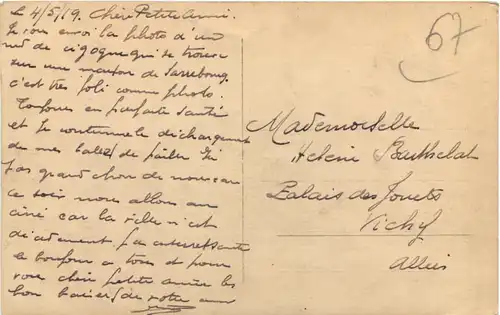 Le 4/5/19. Chère Petite Amie.
Je vous envoi la photo d'un
nid de cigogne qui se trouve
sur une maison de Sarrebourg
c'est très joli comme photo.
Toujours en parfaite santé
et je continue le déchargement
de mes balles de paille. Ici
pas grand chose de nouveau
ce soir nous allons au
ciné car la ville n'est
décidément pas intéressante
le bonjour a tous et pour
vous chère petite amie les
bon baisers de votre ami
67
Mademoiselle
Helene Barthelat
Palais des Jouets
Vichy
Allier